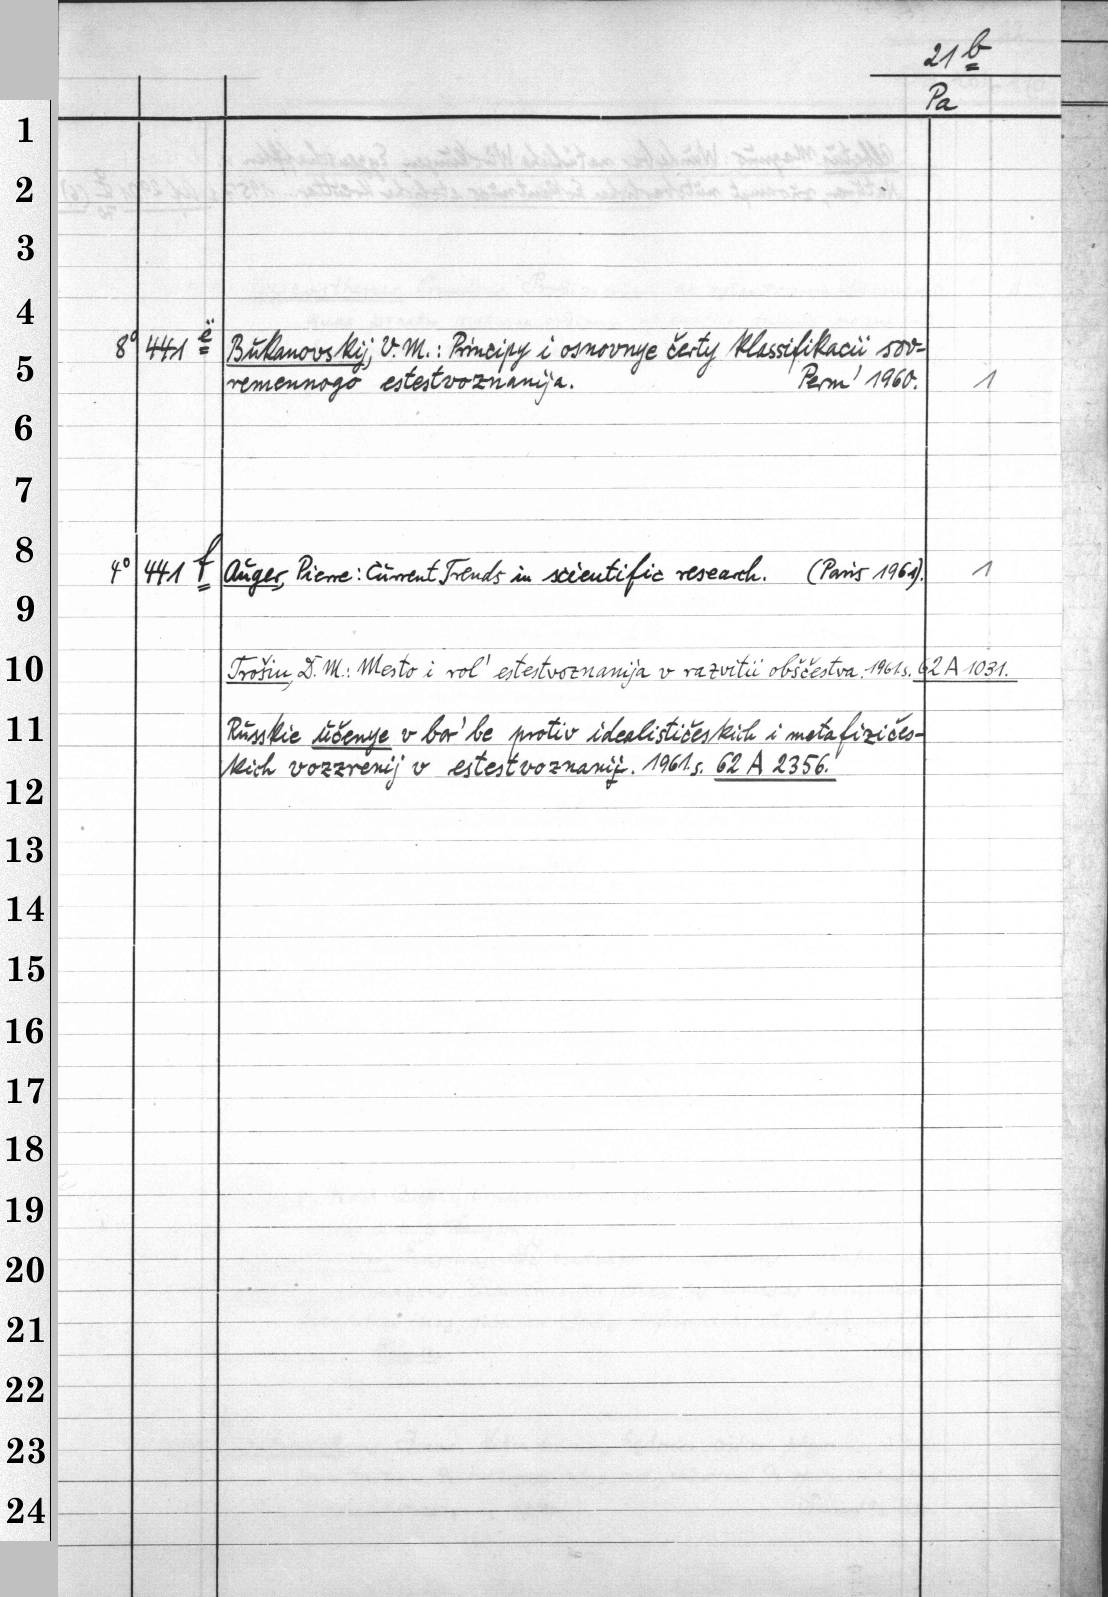 21 b
Pa
1
2
3
4
5
6
7
8
9
10
11
12
13
14
15
16
17
18
19
20
21
22
23
24
8° 441 ë Bukanovskij, V. M.: Principy i osnovnye čerty klassifikacii sov-
remennogo estestvoznanija. Perm' 1960. 1
4° 441 f Auger, Pierre: Current Trends in scientific research. (Paris 1961). 1
Trošin, D. M.: Mesto i rol' estestvoznanija v razvitii obščestva. 1961. s. 62 A 1031.
Russkie učenye v bor'be protiv idealističeskich i metafizičes-
kich vozzrenij v estestvoznanij. 1961. s. 62 A 2356.